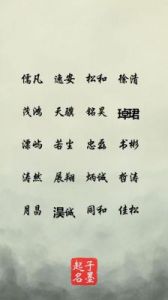 儒凡 逸安 松和 徐清
茂鸿 天骥 铭昊 琸珺
漂屿 若尘 忠磊 书彬
涛然 展翔 炳诚 哲涛
月昌 淏诚 同和 佳松
子墨起名